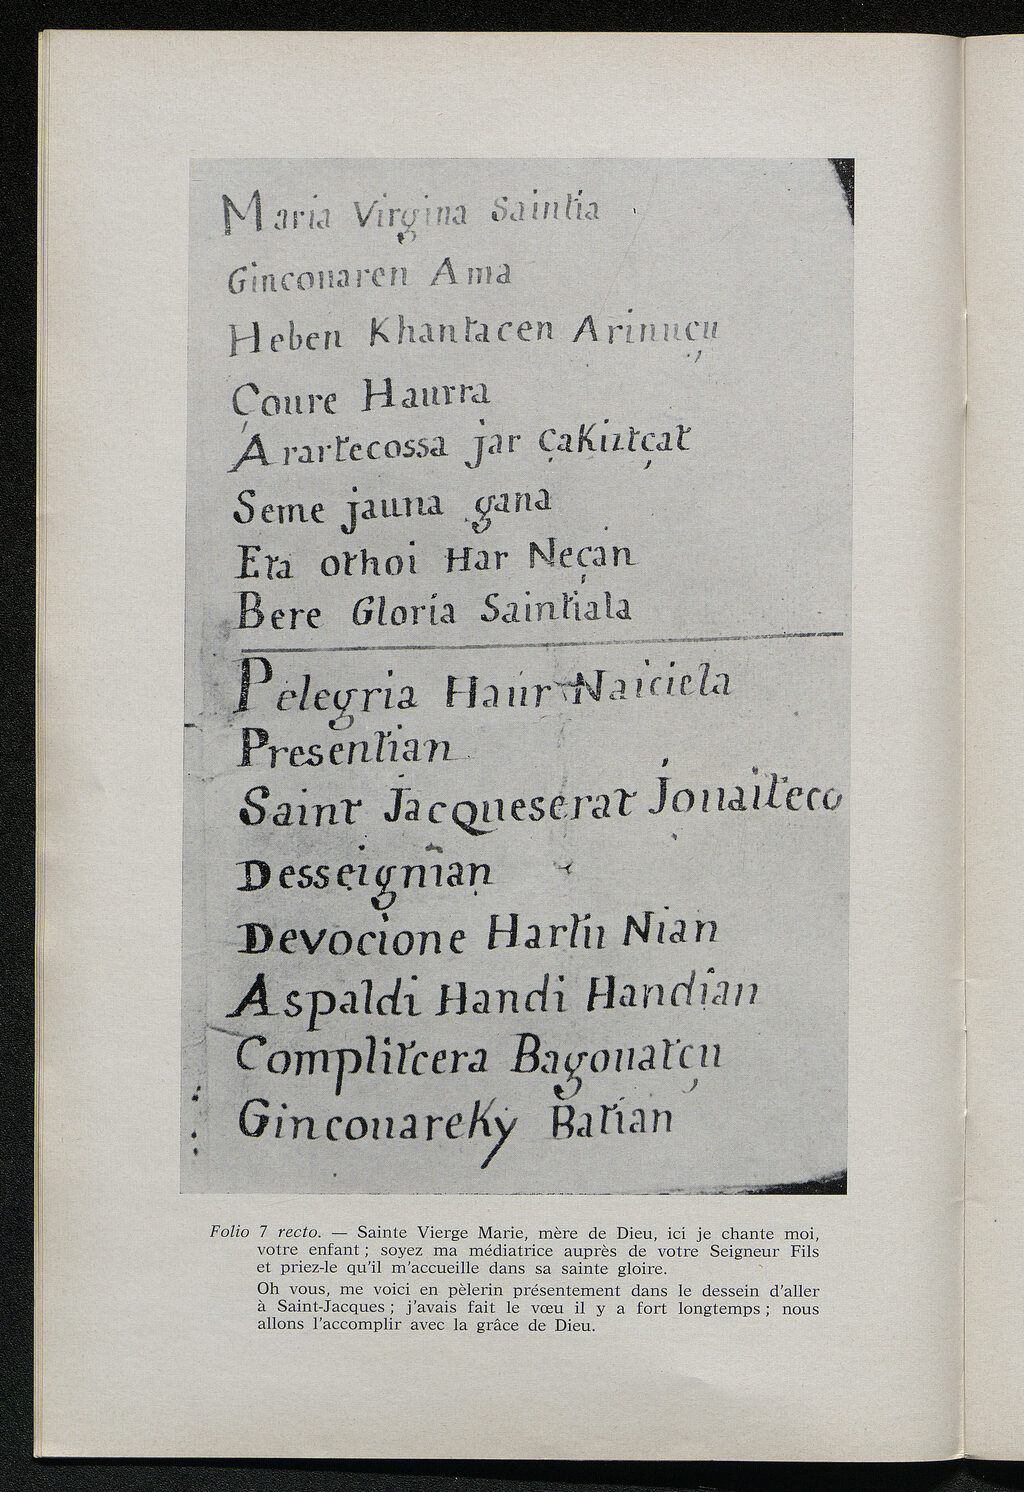 Maria Virgina Saintia
Ginconaren Ama
Heben Khantacen Arinuçu
Çoure Haurra
Arartecossa jar çaKiztçat
Seme jauna gana
Eta othoi Har Neçan
Bere Gloria Saintiala
Pelegria Haur Naiciela
Presentian
Saint Jacqueserat Jouaiteco
Desseignian
Devocione Hartu Nian
Aspaldi Handi Handian
Complitcera Bagouatçu
GinconareKy Batian
Folio 7 recto. — Sainte Vierge Marie, mère de Dieu, ici je chante moi,
votre enfant ; soyez ma médiatrice auprès de votre Seigneur Fils
et priez-le qu'il m'accueille dans sa sainte gloire.
Oh vous, me voici en pèlerin présentement dans le dessein d'aller
à Saint-Jacques ; j'avais fait le vœu il y a fort longtemps ; nous
allons l'accomplir avec la grâce de Dieu.